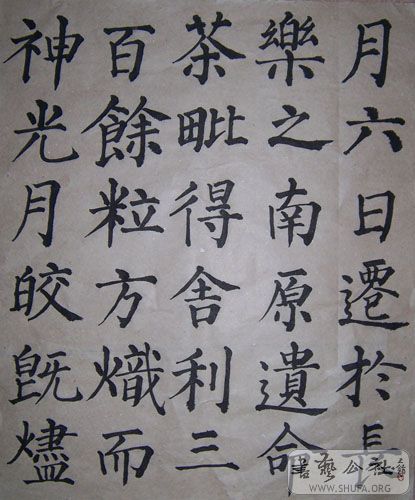 月六日遷於長
樂之南原遺命
茶毗得舍利三
百餘粒方熾而
神光月皎既燼
書藝公社
WWW.SHUFA.ORG